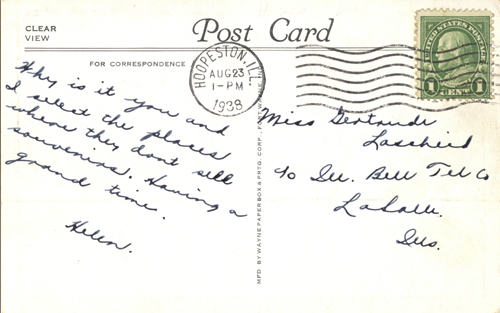 CLEAR
VIEW
Post Card
FOR CORRESPONDENCE
Why is it you and
I select the places
where they dont sell
souvenirs. Having a
grand time.
Helen.
HOOPESTON, ILL.
AUG 23
1-PM
1938
UNITED STATES POSTAGE
1 CENT 1
Miss Gertrude
c/o Ill. Bell Tel Co
LaSalle.
Ills.
MFD BY WAYNE PAPER BOX & PRTG. CORP., FT. WAYNE, IND.